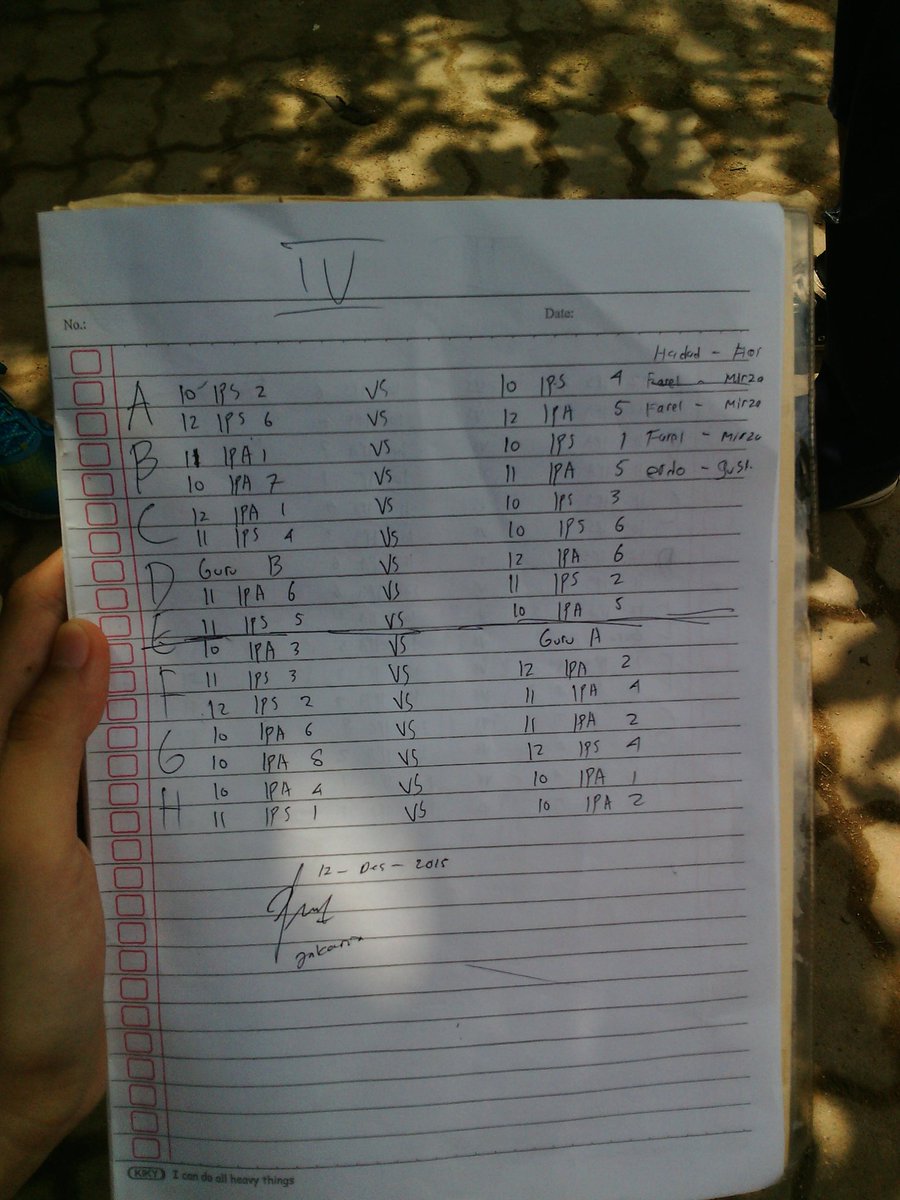 IV
No.: Date:
Hadad -
A 10 IPS 2 VS 10 IPS 4 Farel - Mirza
12 IPS 6 VS 12 IPA 5 Farel - Mirza
B 11 IPA 1 VS 10 IPS 1 Farel - Mirza
10 IPA 7 VS 11 IPA 5
C 12 IPA 1 VS 10 IPS 3
11 IPS 4 VS 10 IPS 6
D Guru B VS 12 IPA 6
11 IPA 6 VS 11 IPS 2
E 11 IPS 5 VS 10 IPA 5
10 IPA 3 VS Guru A
F 11 IPS 3 VS 12 IPA 2
12 IPS 2 VS 11 IPA 4
G 10 IPA 6 VS 11 IPA 2
10 IPA 8 VS 12 IPS 4
H 10 IPA 4 VS 10 IPA 1
11 IPS 1 VS 10 IPA 2
12 - Des - 2015
KIKY I can do all heavy things